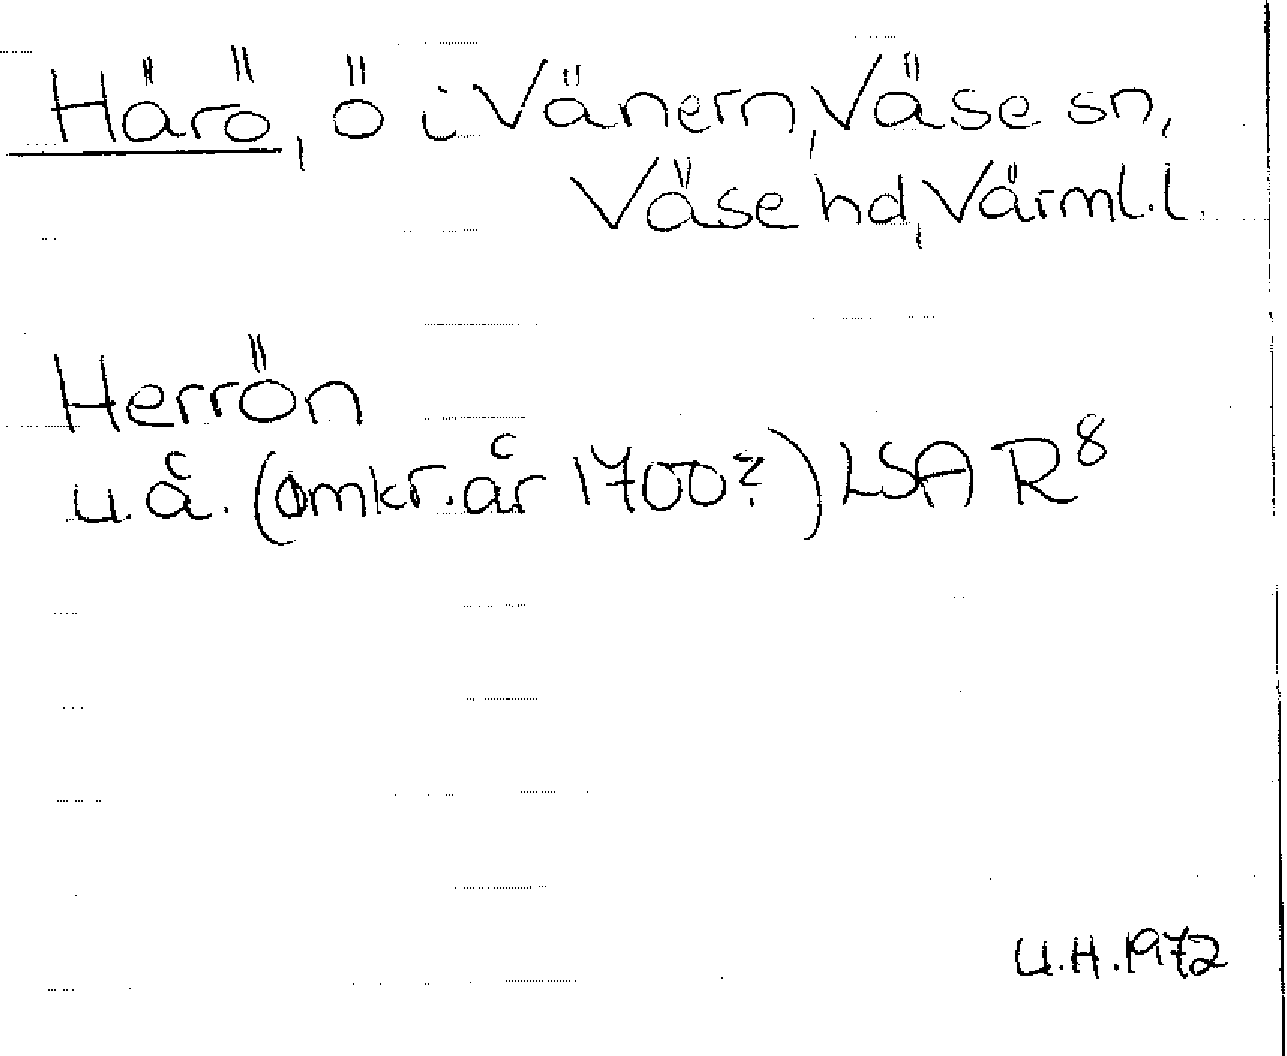 Härö, ö i Vänern, Väse sn,
Väse hd, Värml. l.
Herrön
u.å. (omkr. år 1700?) LSA R⁸
U.H. 1972